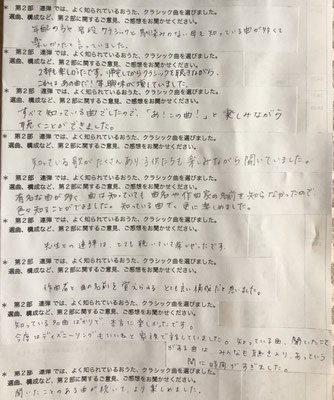 ＊ 第２部 連弾 では、よく知られているおうた、クラシック曲を選びました。
選曲、構成など、第２部に関するご意見、ご感想をお聞かせください。
普段クラシックと馴染みのない母も知っている曲が多くて
楽しかったと言っていました。
＊ 第２部 連弾 では、よく知られているおうた、クラシック曲を選びました。
選曲、構成など、第２部に関するご意見、ご感想をお聞かせください。
２部も楽しかったです。帰宅してからクラシックを聴きながら、
これ、あの曲だ！等興味が増していました。
＊ 第２部 連弾 では、よく知られているおうた、クラシック曲を選びました。
選曲、構成など、第２部に関するご意見、ご感想をお聞かせください。
すべて知っている曲でしたので、「あ！この曲！」と楽しみながら
聴くことができました。
＊ 第２部 連弾 では、よく知られているおうた、クラシック曲を選びました。
選曲、構成など、第２部に関するご意見、ご感想をお聞かせください。
知っている歌がたくさんあり子供たちも楽しみながら聞いていました。
＊ 第２部 連弾 では、よく知られているおうた、クラシック曲を選びました。
選曲、構成など、第２部に関するご意見、ご感想をお聞かせください。
有名な曲が多く、曲は知っていても曲名や作曲家の名前を知らなかったので、
色々知ることができました。知っている曲で、更に楽しめました。
＊ 第２部 連弾 では、よく知られているおうた、クラシック曲を選びました。
選曲、構成など、第２部に関するご意見、ご感想をお聞かせください。
先生との連弾は、とても聴いていて
＊ 第２部 連弾 では、よく知られているおうた、クラシック曲を選びました。
選曲、構成など、第２部に関するご意見、ご感想をお聞かせください。
作曲者と曲の名前を覚えられる、とても良い機会だと思いました。
＊ 第２部 連弾 では、よく知られているおうた、クラシック曲を選びました。
選曲、構成など、第２部に関するご意見、ご感想をお聞かせください。
知っている名曲ばかりで、本当に楽しめたです。
今度はディズニーソングがきいいねと家族で話していました。
＊ 第２部 連弾 では、よく知られているおうた、クラシック曲を選びました。
選曲、構成など、第２部に関するご意見、ご感想をお聞かせください。
知っている曲、聞いたこと
がある曲は、みんなも聴き入り、あっという
間に時間がすぎました。
＊ 第２部 連弾 では、よく知られているおうた、クラシック曲を選びました。
選曲、構成など、第２部に関するご意見、ご感想をお聞かせください。
聞いたことのある曲が続いて、より楽しめました。